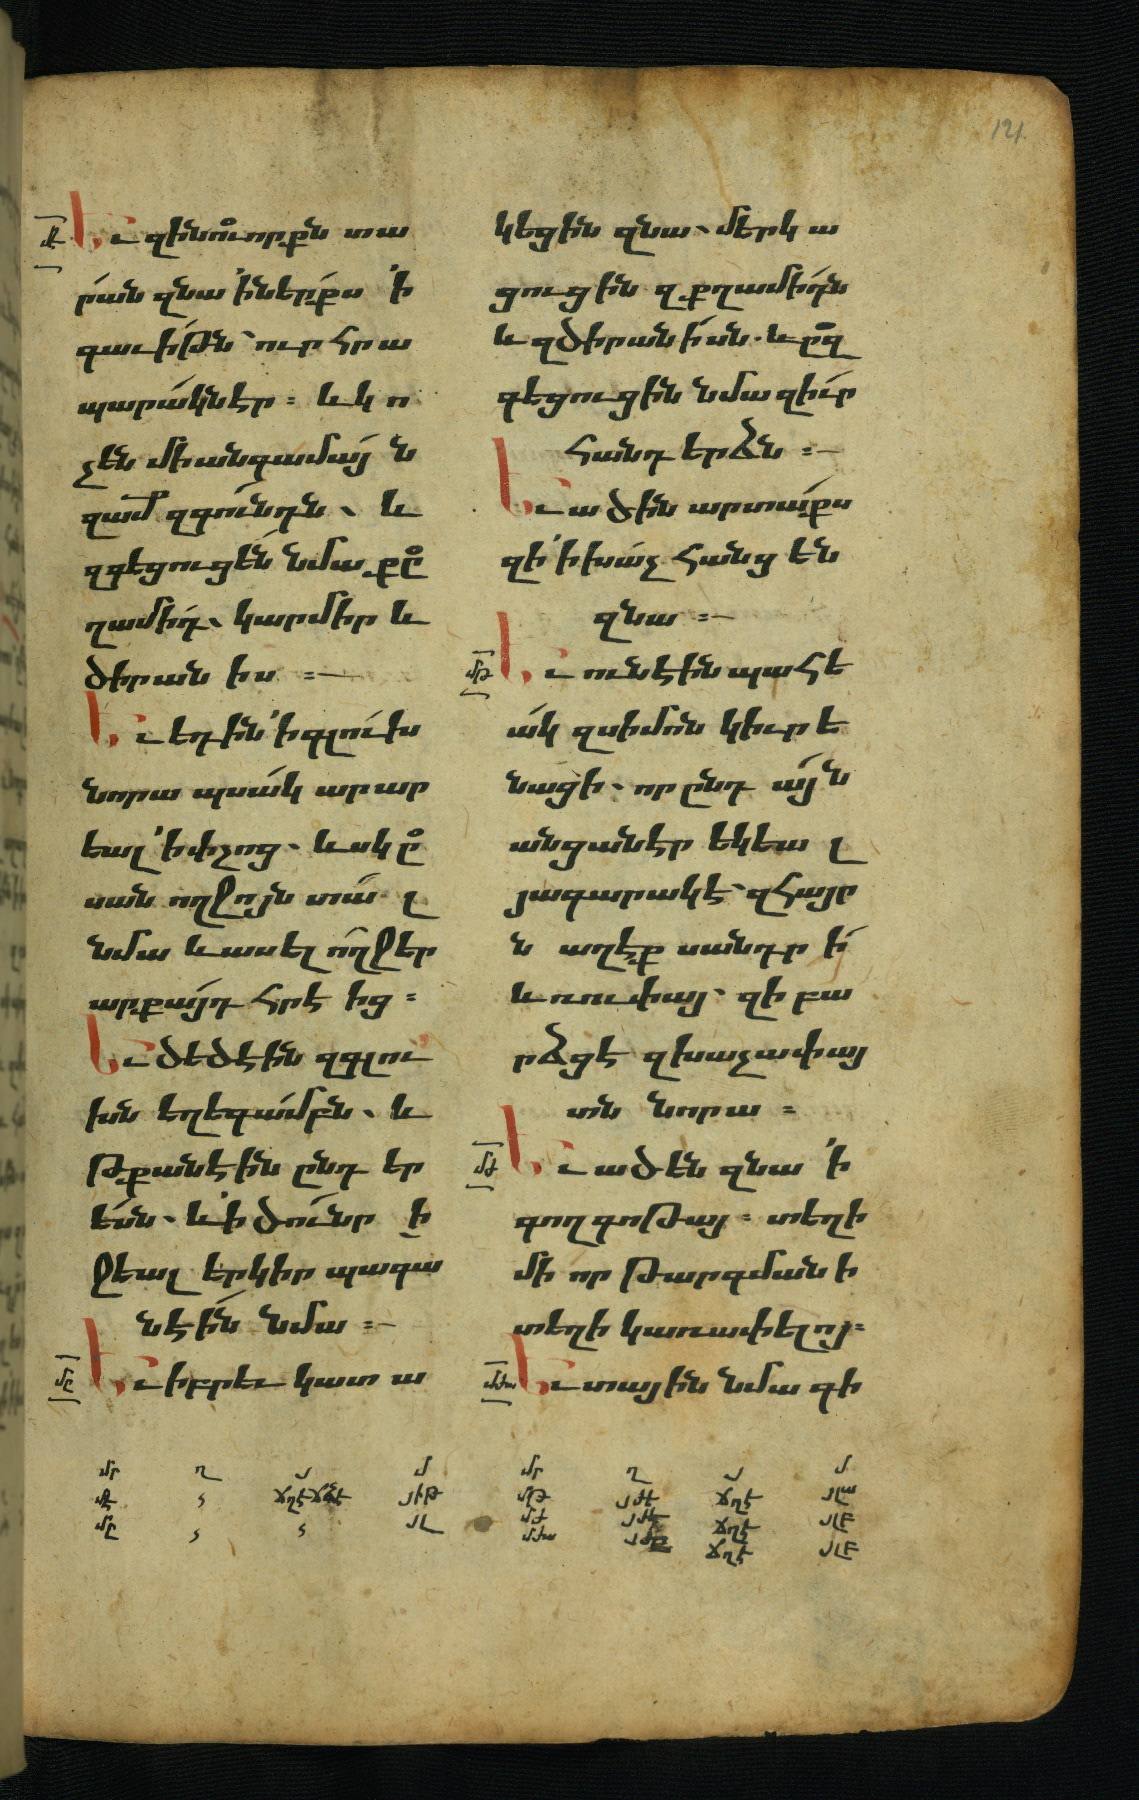 121
Եւ զինուորքն տա
րան զնա ՛ի ներքս ՛ի
գաւիթն՝ ուր հրա
պարակն էր ։ և կո
չեն միանգամայն
զամ զգունդն ՝ և
զգեցուցին նմա քը
ղամիդ ՝ կարմիր և
ծիրանիս ։
Եւ եդին ՛ի գլուխ
նորա պսակ արար
եալ ՛ի փշոց ՝ և սկը
սան ողջոյն տալ
նմա և ասել ողջ եր
արքայդ հրէից ։
Եւ ծեծէին զգլու
խն եղեգամբն ՝ և
թքանէին ընդ եր
եսն ՝ և ՛ի ծունր ի
ջեալ երկիր պագա
նէին նմա ։
Եւ իբրեւ կատա
կեցին զնա ՝ մերկա
ցուցին զքղամիդն
և զծիրանիսն ․ և ըզ
գեցուցին նմա զիւր
հանդերձն ։
Եւ ածին արտաքս
զի ՛ի խաչ հանցեն
զնա ։
Եւ ունէին պահե
ակ զսիմոն կիւրե
նացի ․ որ ընդ այն
անցանէր եկեալ
յագարակէ ՝ զհայր
ն աղէքսանդրի
և ռուփայ ՝ զի բա
րձցէ զխաչափայ
տն նորա ։
Եւ ածեն զնա ՛ի
գողգոթայ ։ տեղի
մի որ թարգմանի
տեղի կառափելոյ ։
Եւ տային նմա գի